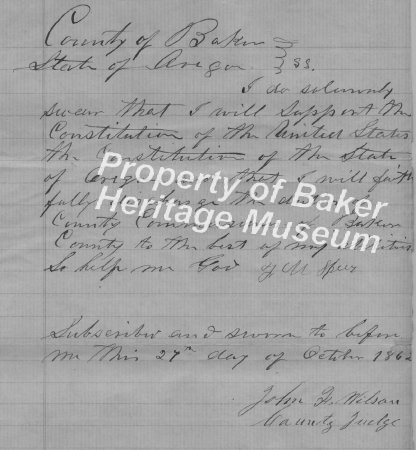 County of Baker
State of Oregon } ss.
I do solemnly
swear that I will support the
Constitution of the United States
the Constitution of the State
of that I will faith
fully the
County Baker
County to the best of my
So help me God
Property of Baker
Heritage Museum
Subscribed and sworn to before
me this 27th day of October 1862
John F. Wilson
County Judge